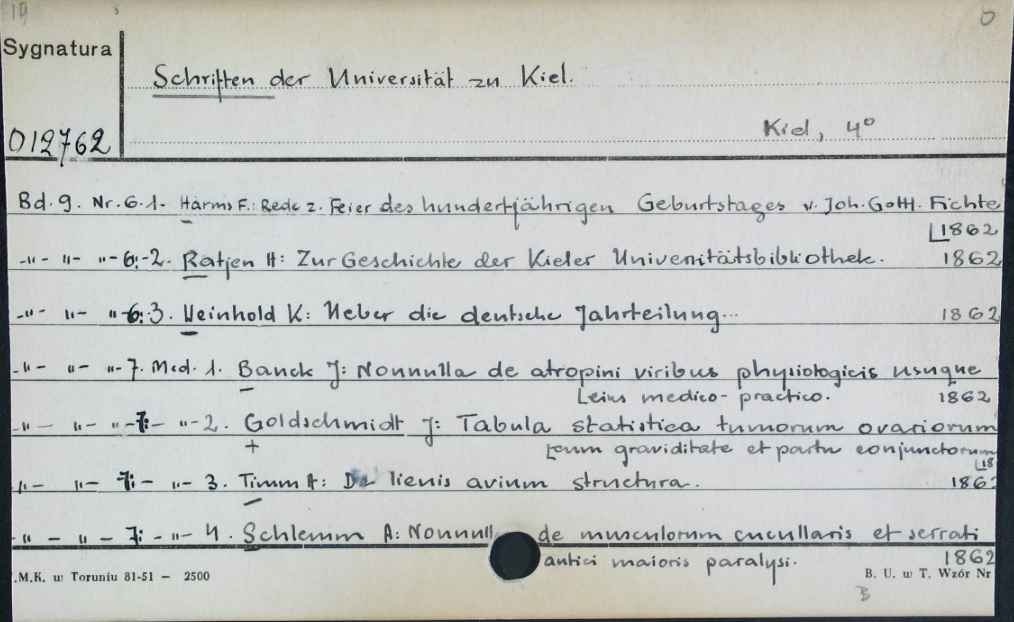 19
Sygnatura
Schriften der Universität zu Kiel.
012762
Kiel, 4°
Bd. 9. Nr. 6. 1. Harms F.: Rede z. Feier des hundertjährigen Geburtstages v. Joh. Gottl. Fichte
1862
-"- "- "- 6:-2. Ratjen H: Zur Geschichte der Kieler Universitätsbibliothek. 1862
-"- "- " 6:3. Weinhold K: Ueber die deutsche Jahrteilung... 1862
-"- "- "-7. Med. 1. Banck J: Nonnulla de atropini viribus physiologicis usuque
eius medico-practico. 1862
-"- "- "-7:- "-2. Goldschmidt J: Tabula statistica tumorum ovariorum
+ cum graviditate et partu conjunctorum
18
"- "- 7:- "- 3. Timm H: De lienis avium structura. 1862
-"- "- 7:- "- 4. Schlemm A: Nonnull de musculorum cucullaris et serrati
antici maioris paralysi. 1862
.M.K. w Toruniu 81-51 — 2500
B. U. w T. Wzór Nr
B